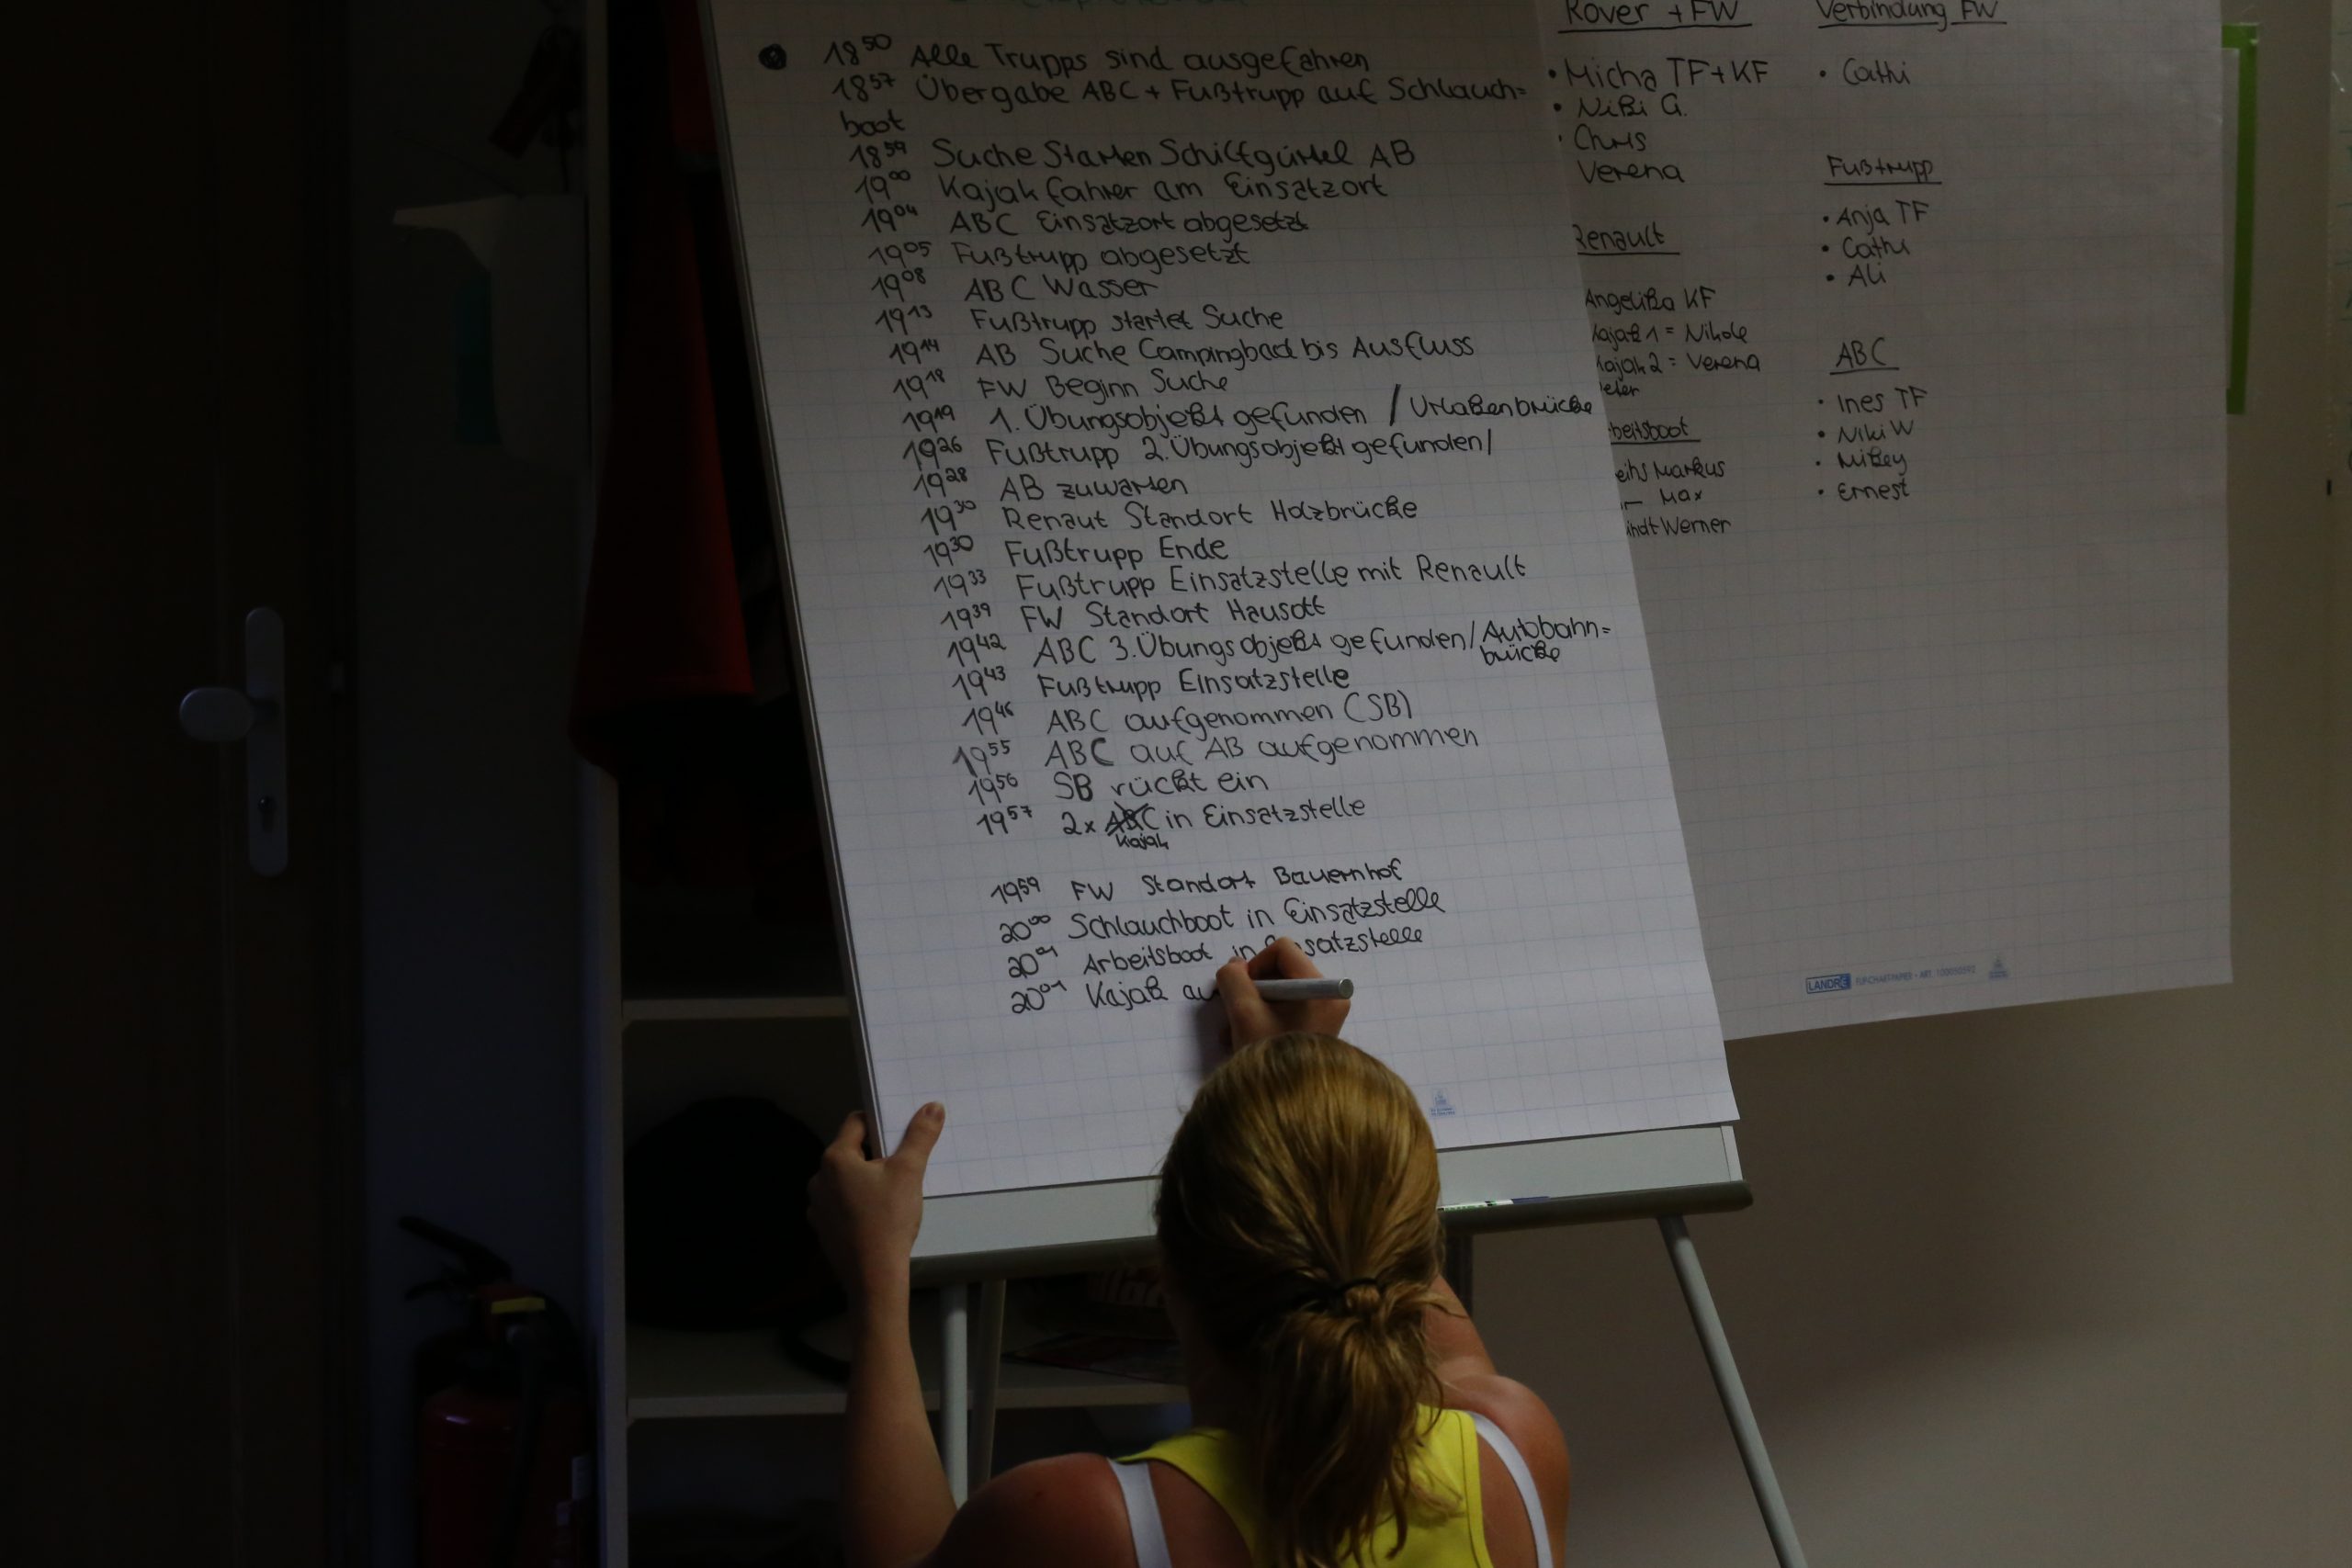 18⁵⁰ Alle Trupps sind ausgefahren
18⁵⁷ Übergabe ABC + Fußtrupp auf Schlauch=
boot
18⁵⁹ Suche Starten Schilfgürtel AB
19⁰⁰ Kajakfahrer am Einsatzort
19⁰⁴ ABC Einsatzort abgesetzt
19⁰⁵ Fußtrupp abgesetzt
19⁰⁸ ABC Wasser
19¹³ Fußtrupp startet Suche
19¹⁴ AB Suche Campingbad bis Ausfluss
19¹⁸ FW Beginn Suche
19¹⁹ 1. Übungsobjekt gefunden / Urlakenbrücke
19²⁶ Fußtrupp 2. Übungsobjekt gefunden/
19²⁸ AB zuwarten
19³⁰ Renaut Standort Holzbrücke
19³⁰ Fußtrupp Ende
19³³ Fußtrupp Einsatzstelle mit Renault
19³⁹ FW Standort Hausott
19⁴² ABC 3. Übungsobjekt gefunden/Autobahn=
brücke
19⁴³ Fußtrupp Einsatzstelle
19⁴⁶ ABC aufgenommen (SB)
19⁵⁵ ABC auf AB aufgenommen
19⁵⁶ SB rückt ein
19⁵⁷ 2x ABC in Einsatzstelle
Kajak
19⁵⁹ FW Standort Bauernhof
20⁰⁰ Schlauchboot in Einsatzstelle
20⁰¹ Arbeitsboot in Einsatzstelle
20⁰¹ Kajak au
Rover + FW
• Micha TF + KF
• Niki G.
• Chris
Verena
Renault
Angelika KF
Kajak 1 = Nikole
Kajak 2 = Verena
eter
beitsboot
eihs Markus
Max
indt Werner
Verbindung FW
• Cathi
Fußtrupp
• Anja TF
• Cathi
• Ali
ABC
• Ines TF
• Niki W
• Mikey
• Ernest
LANDRÉ FLIPCHARTPAPIER • ART. 100050592